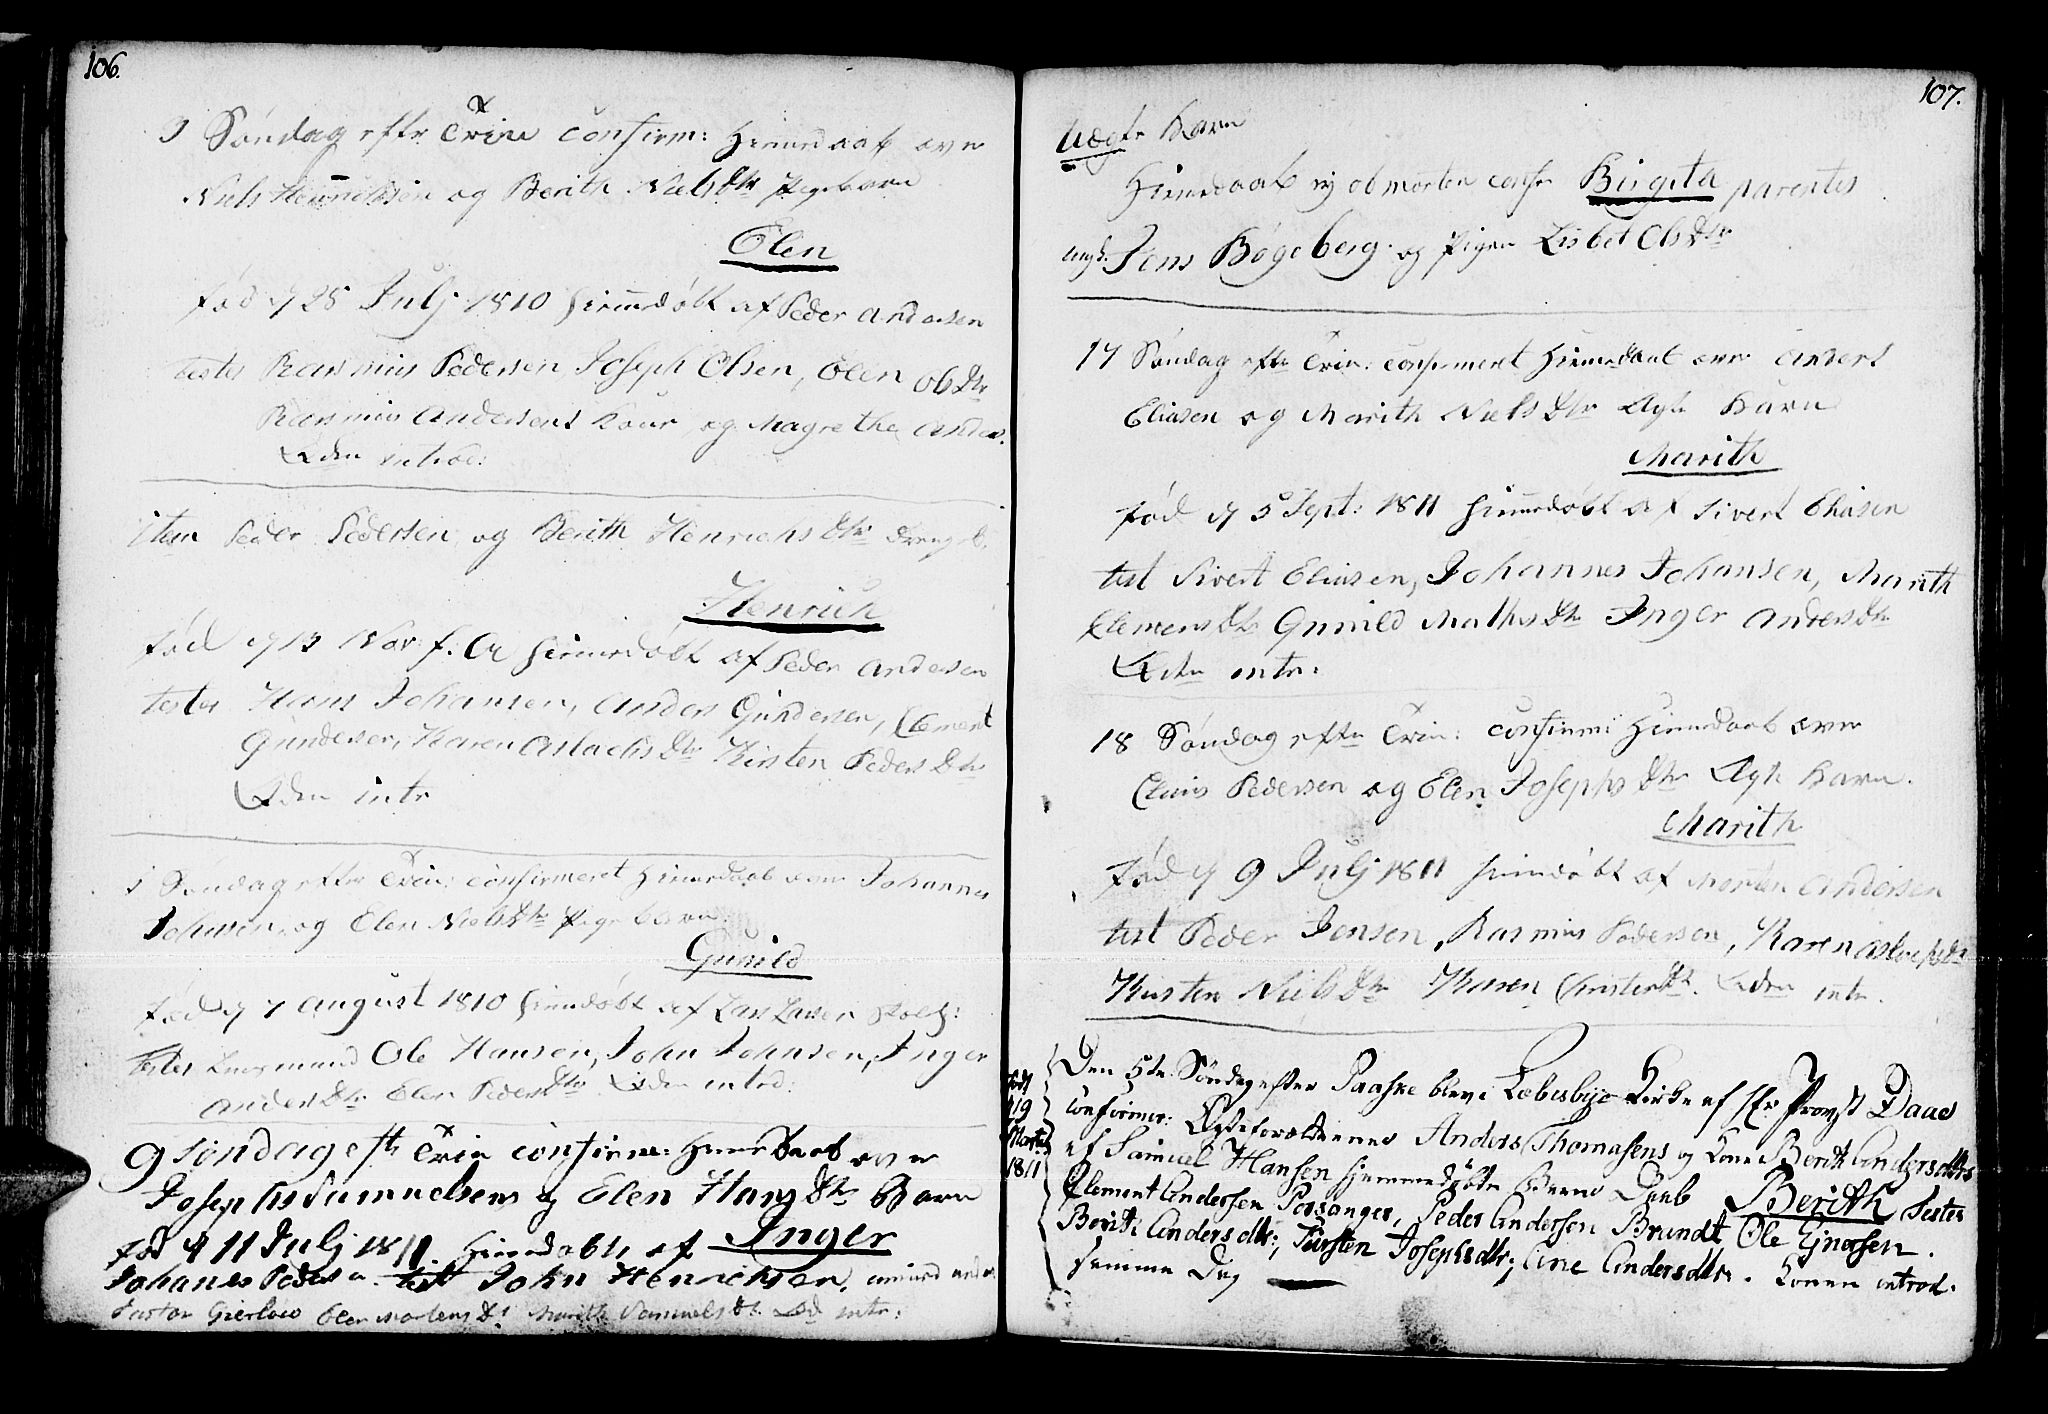 106.
Søndag efter Trin confirm: Hiemdaab over
Niels Henrichsen og Berith Niels Dtr Pigebarn
Elen
fød d 28 Julj 1810 hiemdøbt af Peder Andersen
testes Rasmus Pedersen Joseph Olsen, Elen Ols Dtr
Rasmus Andersens Kone og Magrethe Anders.
introd:
item Peder Pedersen og Berith Henrichs Dtr Drengeb.
Henrich
fød d 13 Nov: f. A hiemdøbt af Peder Andersen
testes Hans Johansen, Anders Gundersen, Clement
Gundersen, Karen Aslachs Dtr Kirsten Peders Dtr
intr
Søndag efter Trin: confirmeret Hiemdaab over Johannes
Johnsen og Elen Niels Dtr Pigebarn
Gunild
fød d 7 August 1810 hiemdøbt af Lars Larsen
testes Ole Hansen, John Johnsen, Inger
Anders Dtr Elen Peders Dtr introd:
9 Søndag eft Trin confirm: Hiemdaab over
Josephs Samuelsens og Elen Hans Dtr Barn
fød d 11 Julj 1811 Hiemdøbt af Inger
Johanes Pedersen. test John Henrichsen,
Pastor Gierlow Elen Mortens Dt Marith Samuels Dt. intr:
107.
Uægte Barn
Hiemdaab confir Birgita parentes
ungk. Jens Bøgeberg og Pigen Lisbet Ols Dtr
17 Søndag efter Trin: confirmeret Hiemdaab over Anders
Eliasen og Marith Niels Dtr Ægte Barn
Marith
fød d 5 Sept: 1811 hiemdøbt af Sivert Eliasen
test Sivert Eliasen, Johannes Johansen, Marith
Clemens Dtr Gunild Mathis Dtr Inger Anders Dtr
intr:
18 Søndag efter Trin: confirm: Hiemdaab over
Claus Pedersen og Elen Josephs Dtr Ægte Barn.
Marith
fød d 9 Julj 1811 hiemdøbt af Morten Andersen
test Peder Jensen, Rasmus Pedersen, Karen
Kirsten Niels Dtr Karen Christen Dt. intr.
født
d 19
Martii
1811
Den 5te Søndag efter Paaske blev i Lebesbye Kirke af Hr Provst Daae
confirmer: Ægteforældrenes Anders Thomasens og Kone Berith Andersdtrs
af Samuel Hansen hjemmedøbte Børns Daab Berith Testes
Clement Andersen Porsanger, Peder Andersen Brandt Ole Ejnersen.
Berith Andersdtr, Kirsten Josephsdtr, Ane Andersdtr. Konen introd.
samme Dag